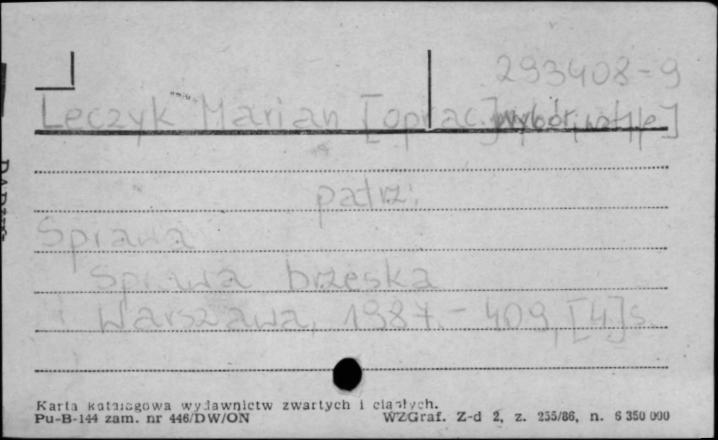 293408-9
Leczyk Marian [oprac. wybór, not, ]
patrz:
Sprawa
Sprawa brzeska
Warszawa, 1987. - 409, [4] s.
Karta katalogowa wydawnictw zwartych i ciągłych.
Pu-B-144 zam. nr 446/DW/ON WZGraf. Z-d 2, z. 255/86, n. 6 350 000